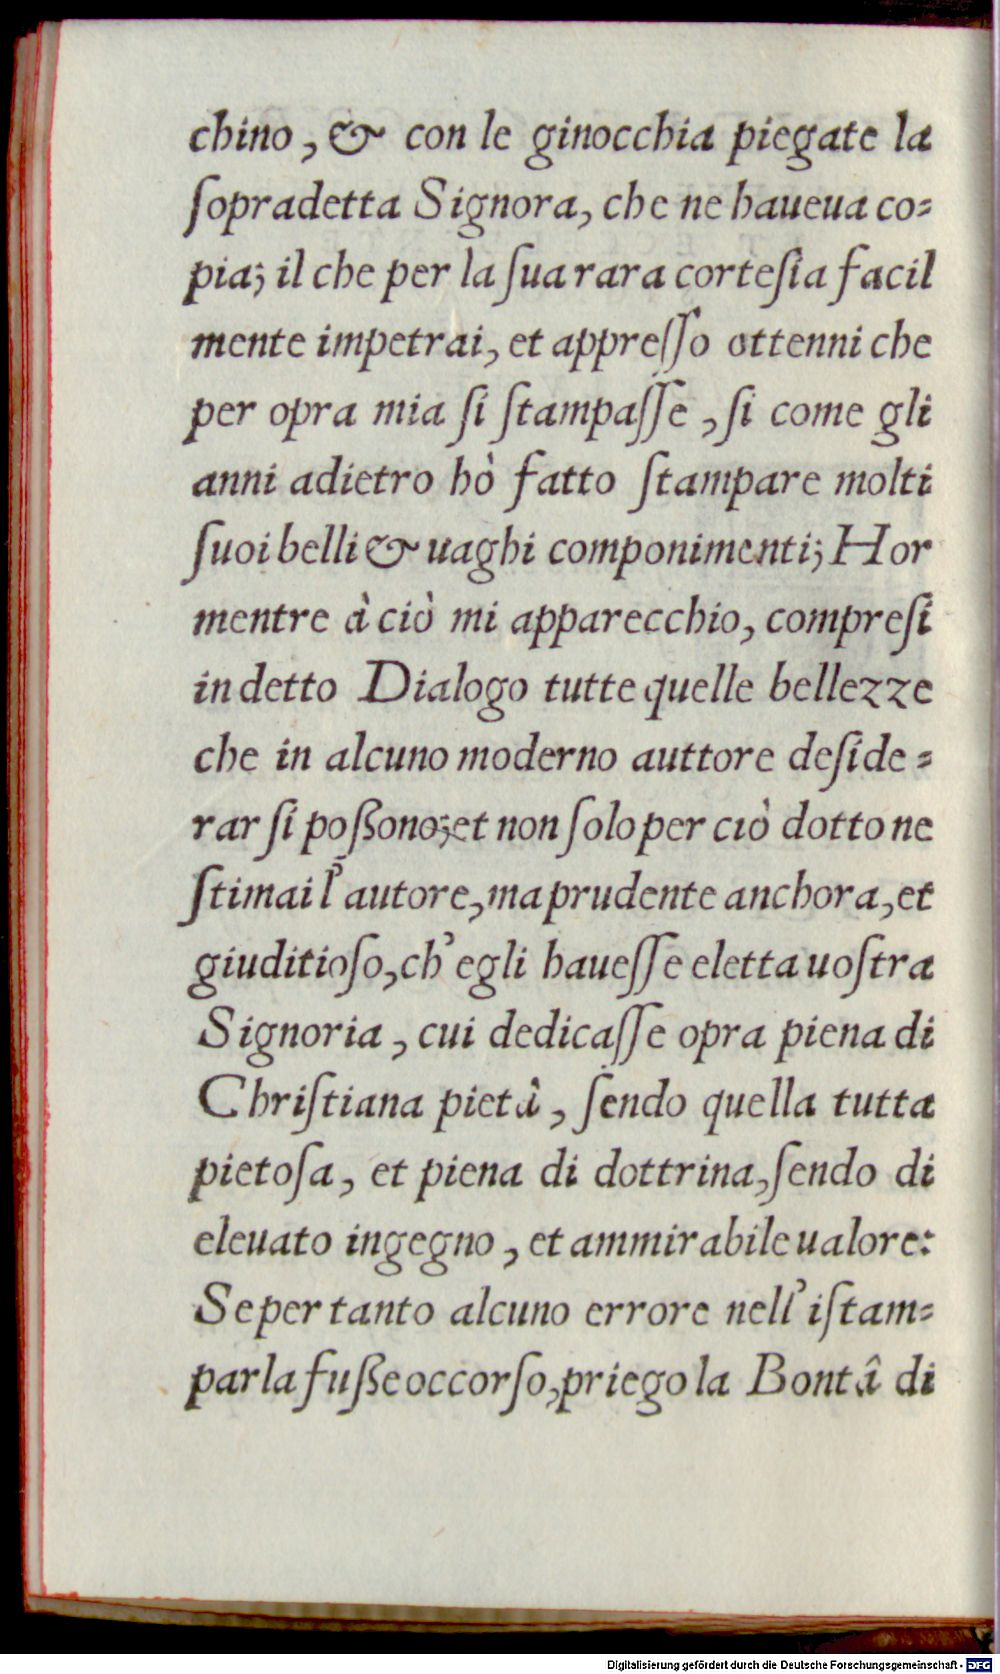 chino, & con le ginocchia piegate la
ſopradetta Signora, che ne haueua co=
pia; il che per la ſua rara corteſia facil
mente impetrai, et appreſſo ottenni che
per opra mia ſi ſtampaſſe, ſi come gli
anni adietro hò fatto ſtampare molti
ſuoi belli & uaghi componimenti; Hor
mentre à ciò mi apparecchio, compreſi
in detto Dialogo tutte quelle bellezze
che in alcuno moderno auttore deſide=
rar ſi poßono; et non ſolo per ciò dotto ne
ſtimai l'autore, ma prudente anchora, et
giuditioſo, ch'egli haueſſe eletta uoſtra
Signoria, cui dedicaſſe opra piena di
Chriſtiana pietà, ſendo quella tutta
pietoſa, et piena di dottrina, ſendo di
eleuato ingegno, et ammirabile ualore:
Se per tanto alcuno errore nell'iſtam=
parla fuße occorſo, priego la Bontâ di
Digitalisierung gefördert durch die Deutsche Forschungsgemeinschaft - DFG